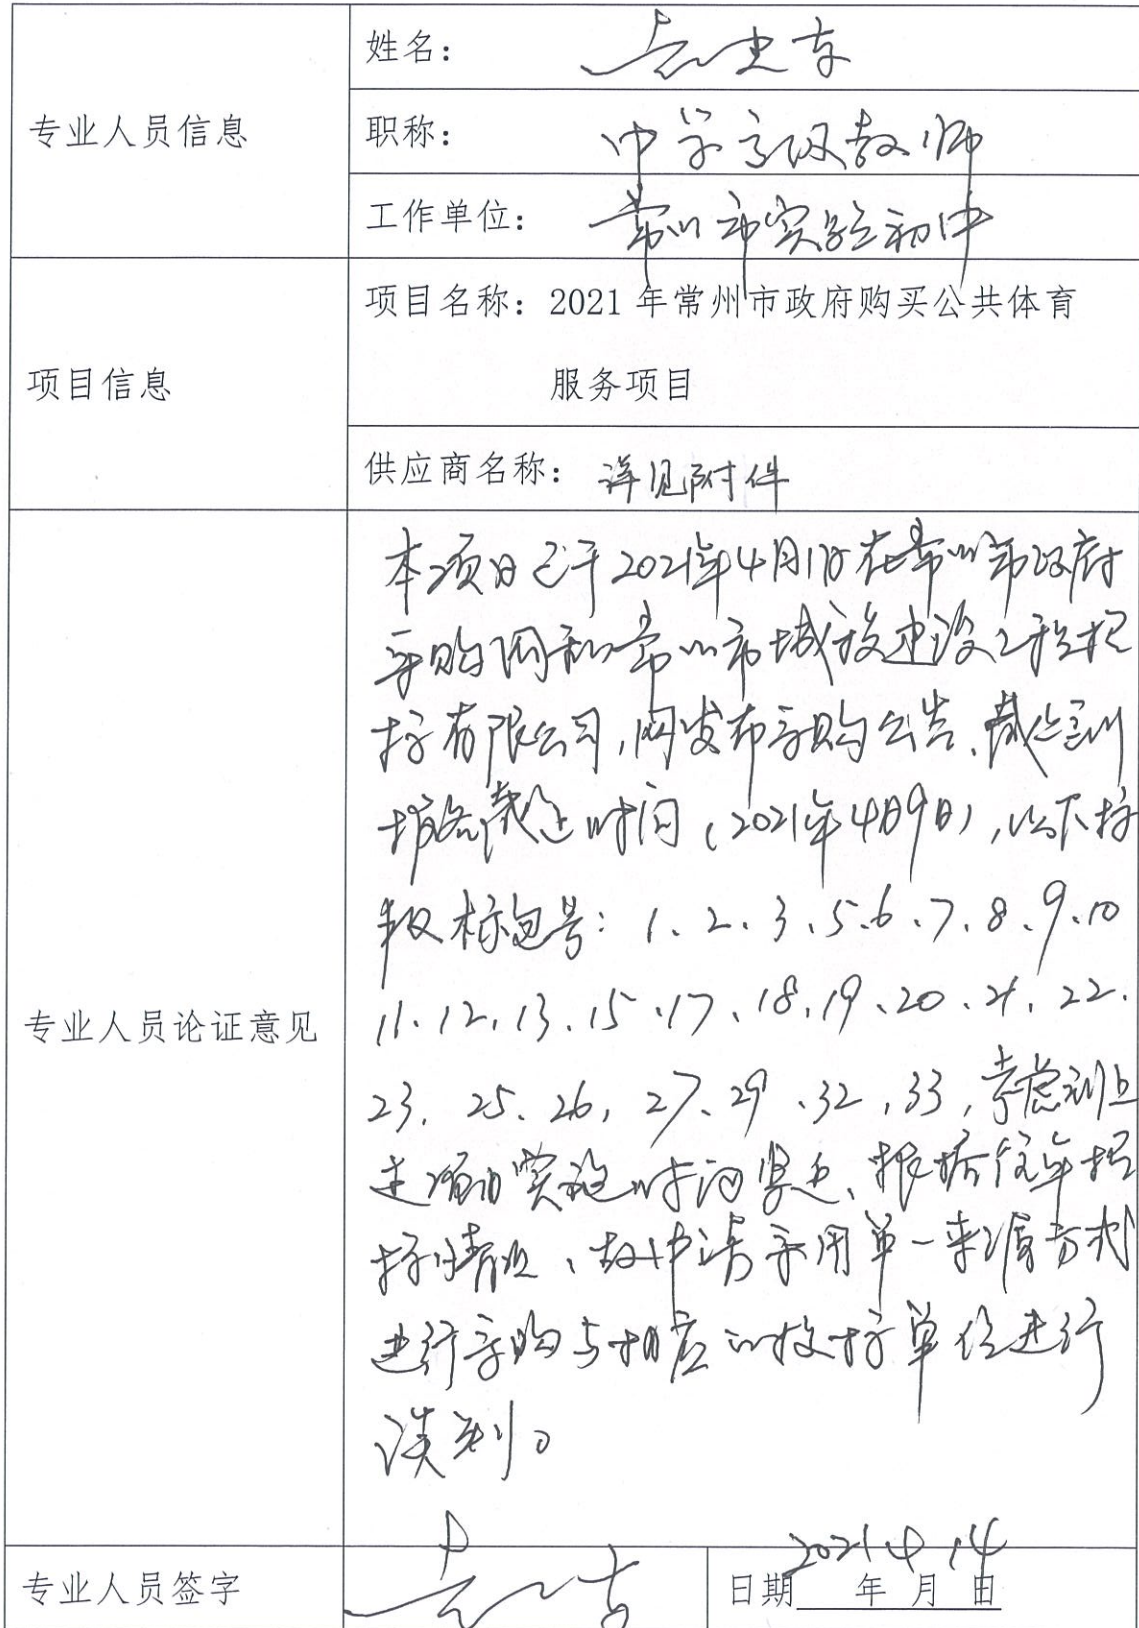 专业人员信息
姓名：
职称：中学高级教师
工作单位：常州市实验初中
项目信息
项目名称：2021年常州市政府购买公共体育
服务项目
供应商名称：详见附件
专业人员论证意见
本项目已于2021年4月1日在常州市政府
采购网和常州市城投建设工程招
标有限公司,网发布采购公告、截止到
报名截止时间(2021年4月9日),以下标
标包号：1、2、3、5、6、7、8、9、10
11、12、13、15、17、18、19、20、21、22、
23、25、26、27、29、32、33,考虑到上
述项目实施时间紧迫、根据往年招
标情况、故申请采用单一来源方式
进行采购与相应的投标单位进行
谈判。
专业人员签字
日期 2021年4月14日